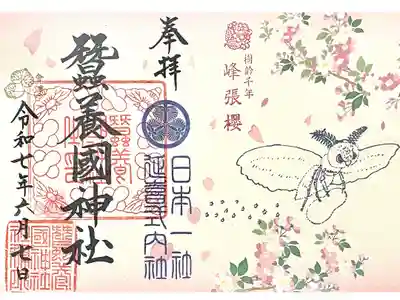 奉拝
蠶養國神社
日本一社
延喜式内社
令和七年六月七日
樹齢千年
峰張櫻